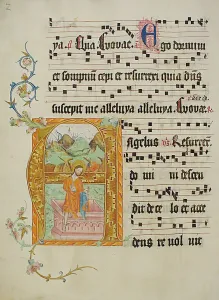 ya. Ana. Evovae. Ego dormivi
et sompnum cepi et resurrexi quia dns
suscepit me alleluya alleluya. Evovae.
Angelus Resurrex.
do mi ni descen
dit de ce lo et acce
dens re vol vit